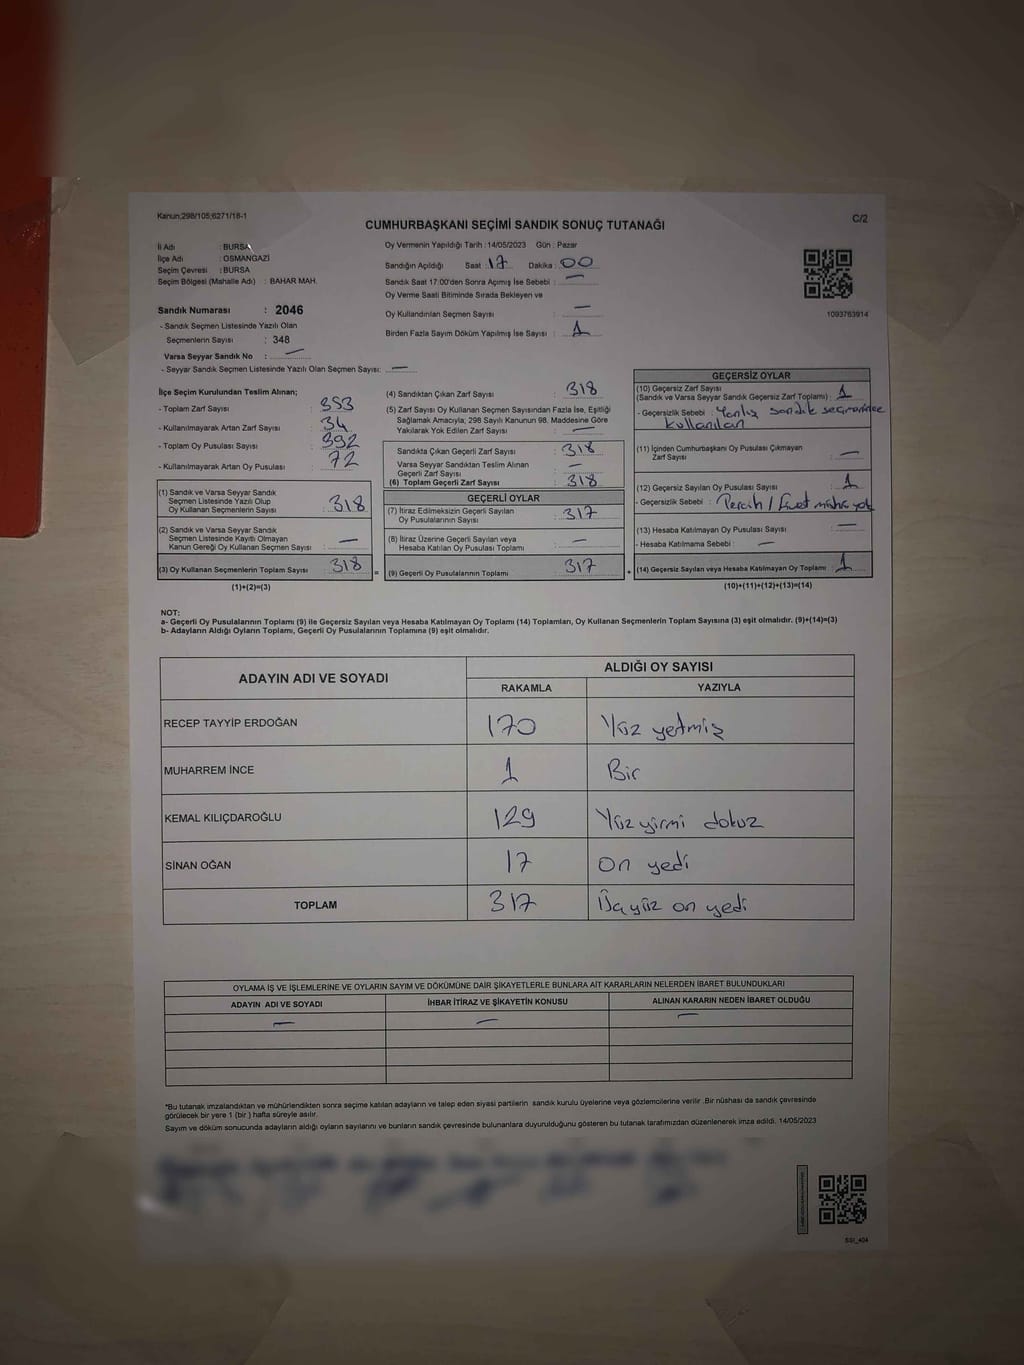 Kanun;298/105;6271/18-1
C/2
CUMHURBAŞKANI SEÇİMİ SANDIK SONUÇ TUTANAĞI
İl Adı : BURSA
İlçe Adı : OSMANGAZİ
Seçim Çevresi : BURSA
Seçim Bölgesi (Mahalle Adı) : BAHAR MAH.
Oy Vermenin Yapıldığı Tarih : 14/05/2023 Gün : Pazar
Sandığın Açıldığı Saat : 17 Dakika : 00
Sandık Saat 17:00'den Sonra Açılmış İse Sebebi : —
Oy Verme Saati Bitiminde Sırada Bekleyen ve
Oy Kullandırılan Seçmen Sayısı : —
Birden Fazla Sayım Döküm Yapılmış İse Sayısı : 1
1093763914
Sandık Numarası : 2046
- Sandık Seçmen Listesinde Yazılı Olan
Seçmenlerin Sayısı : 348
Varsa Seyyar Sandık No : —
- Seyyar Sandık Seçmen Listesinde Yazılı Olan Seçmen Sayısı: —
İlçe Seçim Kurulundan Teslim Alınan;
- Toplam Zarf Sayısı : 353
- Kullanılmayarak Artan Zarf Sayısı : 34
- Toplam Oy Pusulası Sayısı : 392
- Kullanılmayarak Artan Oy Pusulası : 72
(1) Sandık ve Varsa Seyyar Sandık
Seçmen Listesinde Yazılı Olup
Oy Kullanan Seçmenlerin Sayısı : 318
(2) Sandık ve Varsa Seyyar Sandık
Seçmen Listesinde Kayıtlı Olmayan
Kanun Gereği Oy Kullanan Seçmen Sayısı : —
(3) Oy Kullanan Seçmenlerin Toplam Sayısı : 318
(1)+(2)=(3)
(4) Sandıktan Çıkan Zarf Sayısı : 318
(5) Zarf Sayısı Oy Kullanan Seçmen Sayısından Fazla İse, Eşitliği
Sağlamak Amacıyla; 298 Sayılı Kanunun 98. Maddesine Göre
Yakılarak Yok Edilen Zarf Sayısı : —
Sandıkta Çıkan Geçerli Zarf Sayısı : 318
Varsa Seyyar Sandıktan Teslim Alınan
Geçerli Zarf Sayısı : —
(6) Toplam Geçerli Zarf Sayısı : 318
GEÇERLİ OYLAR
(7) İtiraz Edilmeksizin Geçerli Sayılan
Oy Pusulalarının Sayısı : 317
(8) İtiraz Üzerine Geçerli Sayılan veya
Hesaba Katılan Oy Pusulası Toplamı : —
= (9) Geçerli Oy Pusulalarının Toplamı : 317
GEÇERSİZ OYLAR
(10) Geçersiz Zarf Sayısı
(Sandık ve Varsa Seyyar Sandık Geçersiz Zarf Toplamı) : 1
- Geçersizlik Sebebi : Yanlış sandık seçmenince
kullanılan
(11) İçinden Cumhurbaşkanı Oy Pusulası Çıkmayan
Zarf Sayısı : —
(12) Geçersiz Sayılan Oy Pusulası Sayısı : 1
- Geçersizlik Sebebi : Tercih / Evet mührü yok
(13) Hesaba Katılmayan Oy Pusulası Sayısı : —
- Hesaba Katılmama Sebebi : —
+ (14) Geçersiz Sayılan veya Hesaba Katılmayan Oy Toplamı : 1
(10)+(11)+(12)+(13)=(14)
NOT:
a- Geçerli Oy Pusulalarının Toplamı (9) ile Geçersiz Sayılan veya Hesaba Katılmayan Oy Toplamı (14) Toplamları, Oy Kullanan Seçmenlerin Toplam Sayısına (3) eşit olmalıdır. (9)+(14)=(3)
b- Adayların Aldığı Oyların Toplamı, Geçerli Oy Pusulalarının Toplamına (9) eşit olmalıdır.
ADAYIN ADI VE SOYADI
ALDIĞI OY SAYISI
RAKAMLA YAZIYLA
RECEP TAYYİP ERDOĞAN 170 Yüz yetmiş
MUHARREM İNCE 1 Bir
KEMAL KILIÇDAROĞLU 129 Yüz yirmi dokuz
SİNAN OĞAN 17 On yedi
TOPLAM 317 Üçyüz on yedi
OYLAMA İŞ VE İŞLEMLERİNE VE OYLARIN SAYIM VE DÖKÜMÜNE DAİR ŞİKAYETLERLE BUNLARA AİT KARARLARIN NELERDEN İBARET BULUNDUKLARI
ADAYIN ADI VE SOYADI İHBAR İTİRAZ VE ŞİKAYETİN KONUSU ALINAN KARARIN NEDEN İBARET OLDUĞU
— — —
*Bu tutanak imzalandıktan ve mühürlendikten sonra seçime katılan adayların ve talep eden siyasi partilerin sandık kurulu üyelerine veya gözlemcilerine verilir .Bir nüshası da sandık çevresinde
görülecek bir yere 1 (bir ) hafta süreyle asılır.
Sayım ve döküm sonucunda adayların aldığı oyların sayılarını ve bunların sandık çevresinde bulunanlara duyurulduğunu gösteren bu tutanak tarafımızdan düzenlenerek imza edildi. 14/05/2023
SSI_404